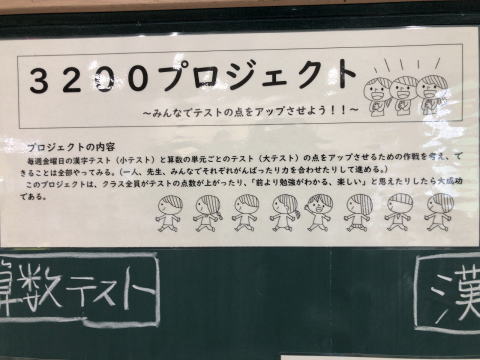 3200プロジェクト
～みんなでテストの点をアップさせよう！！～
プロジェクトの内容
毎週金曜日の漢字テスト（小テスト）と算数の単元ごとのテスト（大テスト）の点をアップさせるための作戦を考え、で
きることは全部やってみる。（一人、先生、みんなでそれぞれがんばったり力を合わせたりして進める。）
このプロジェクトは、クラス全員がテストの点数が上がったり、「前より勉強がわかる、楽しい」と思えたりしたら大成功
である。
算数テスト
漢